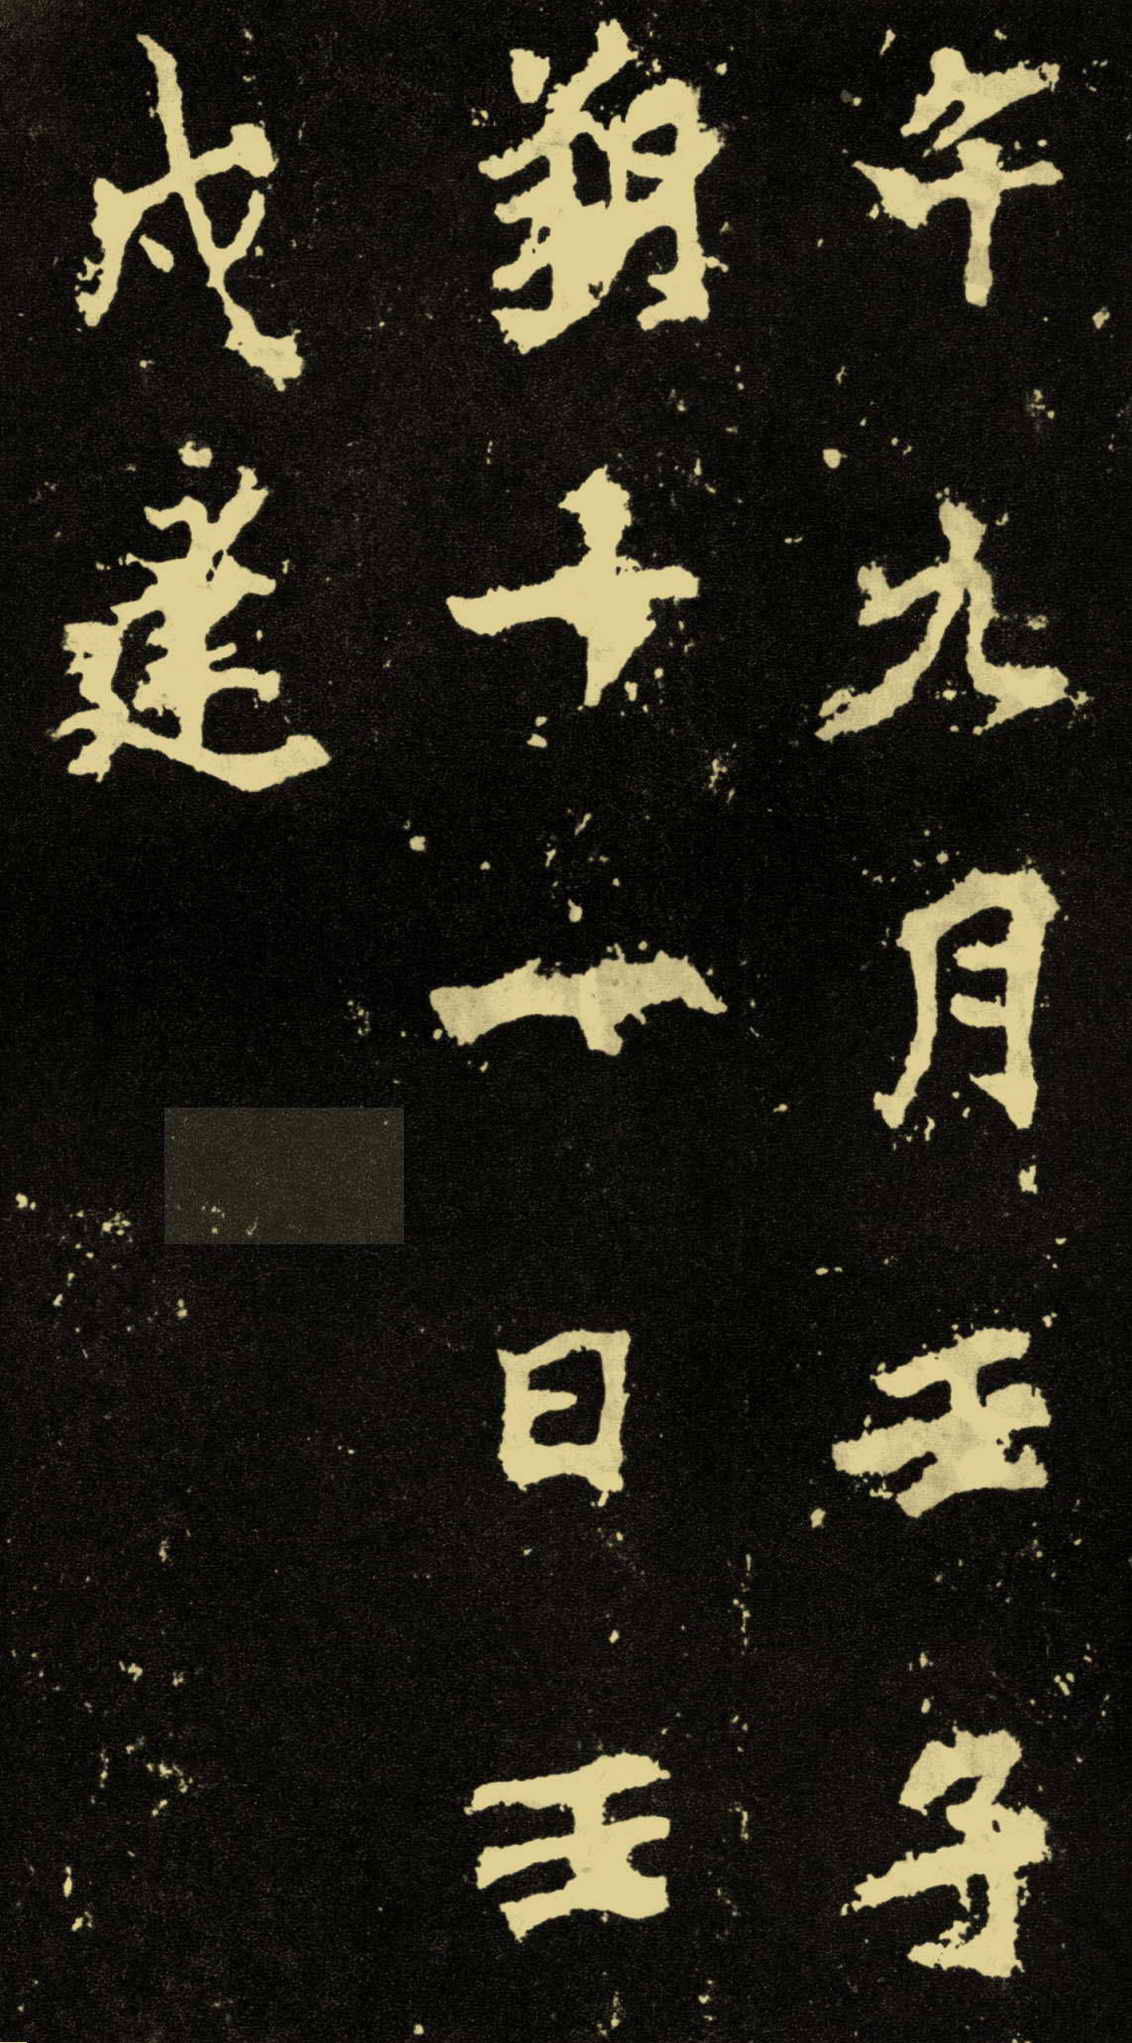 午九月壬子
朔十一日壬
戌建